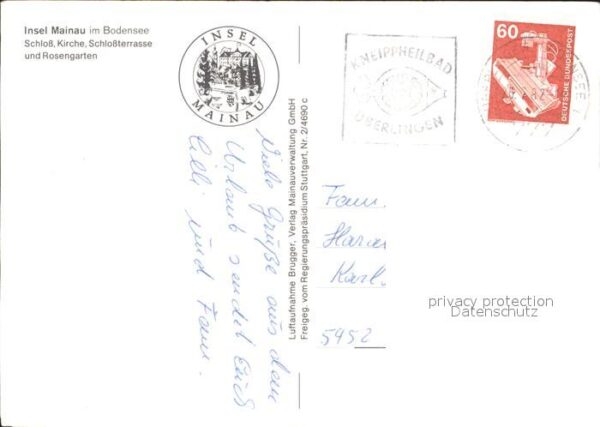 Insel Mainau im Bodensee
Schloß, Kirche, Schloßterrasse
und Rosengarten
INSEL
MAINAU
KNEIPPHEILBAD
ÜBERLINGEN
60
DEUTSCHE BUNDESPOST
Viele Grüße aus dem
Urlaub sendet Euch
Cilli und Fam.
Luftaufnahme Brugger, Verlag Mainauverwaltung GmbH
Freigeg. vom Regierungspräsidium Stuttgart, Nr. 2/4690 c
Fam.
Karl.
5952
privacy protection
Datenschutz